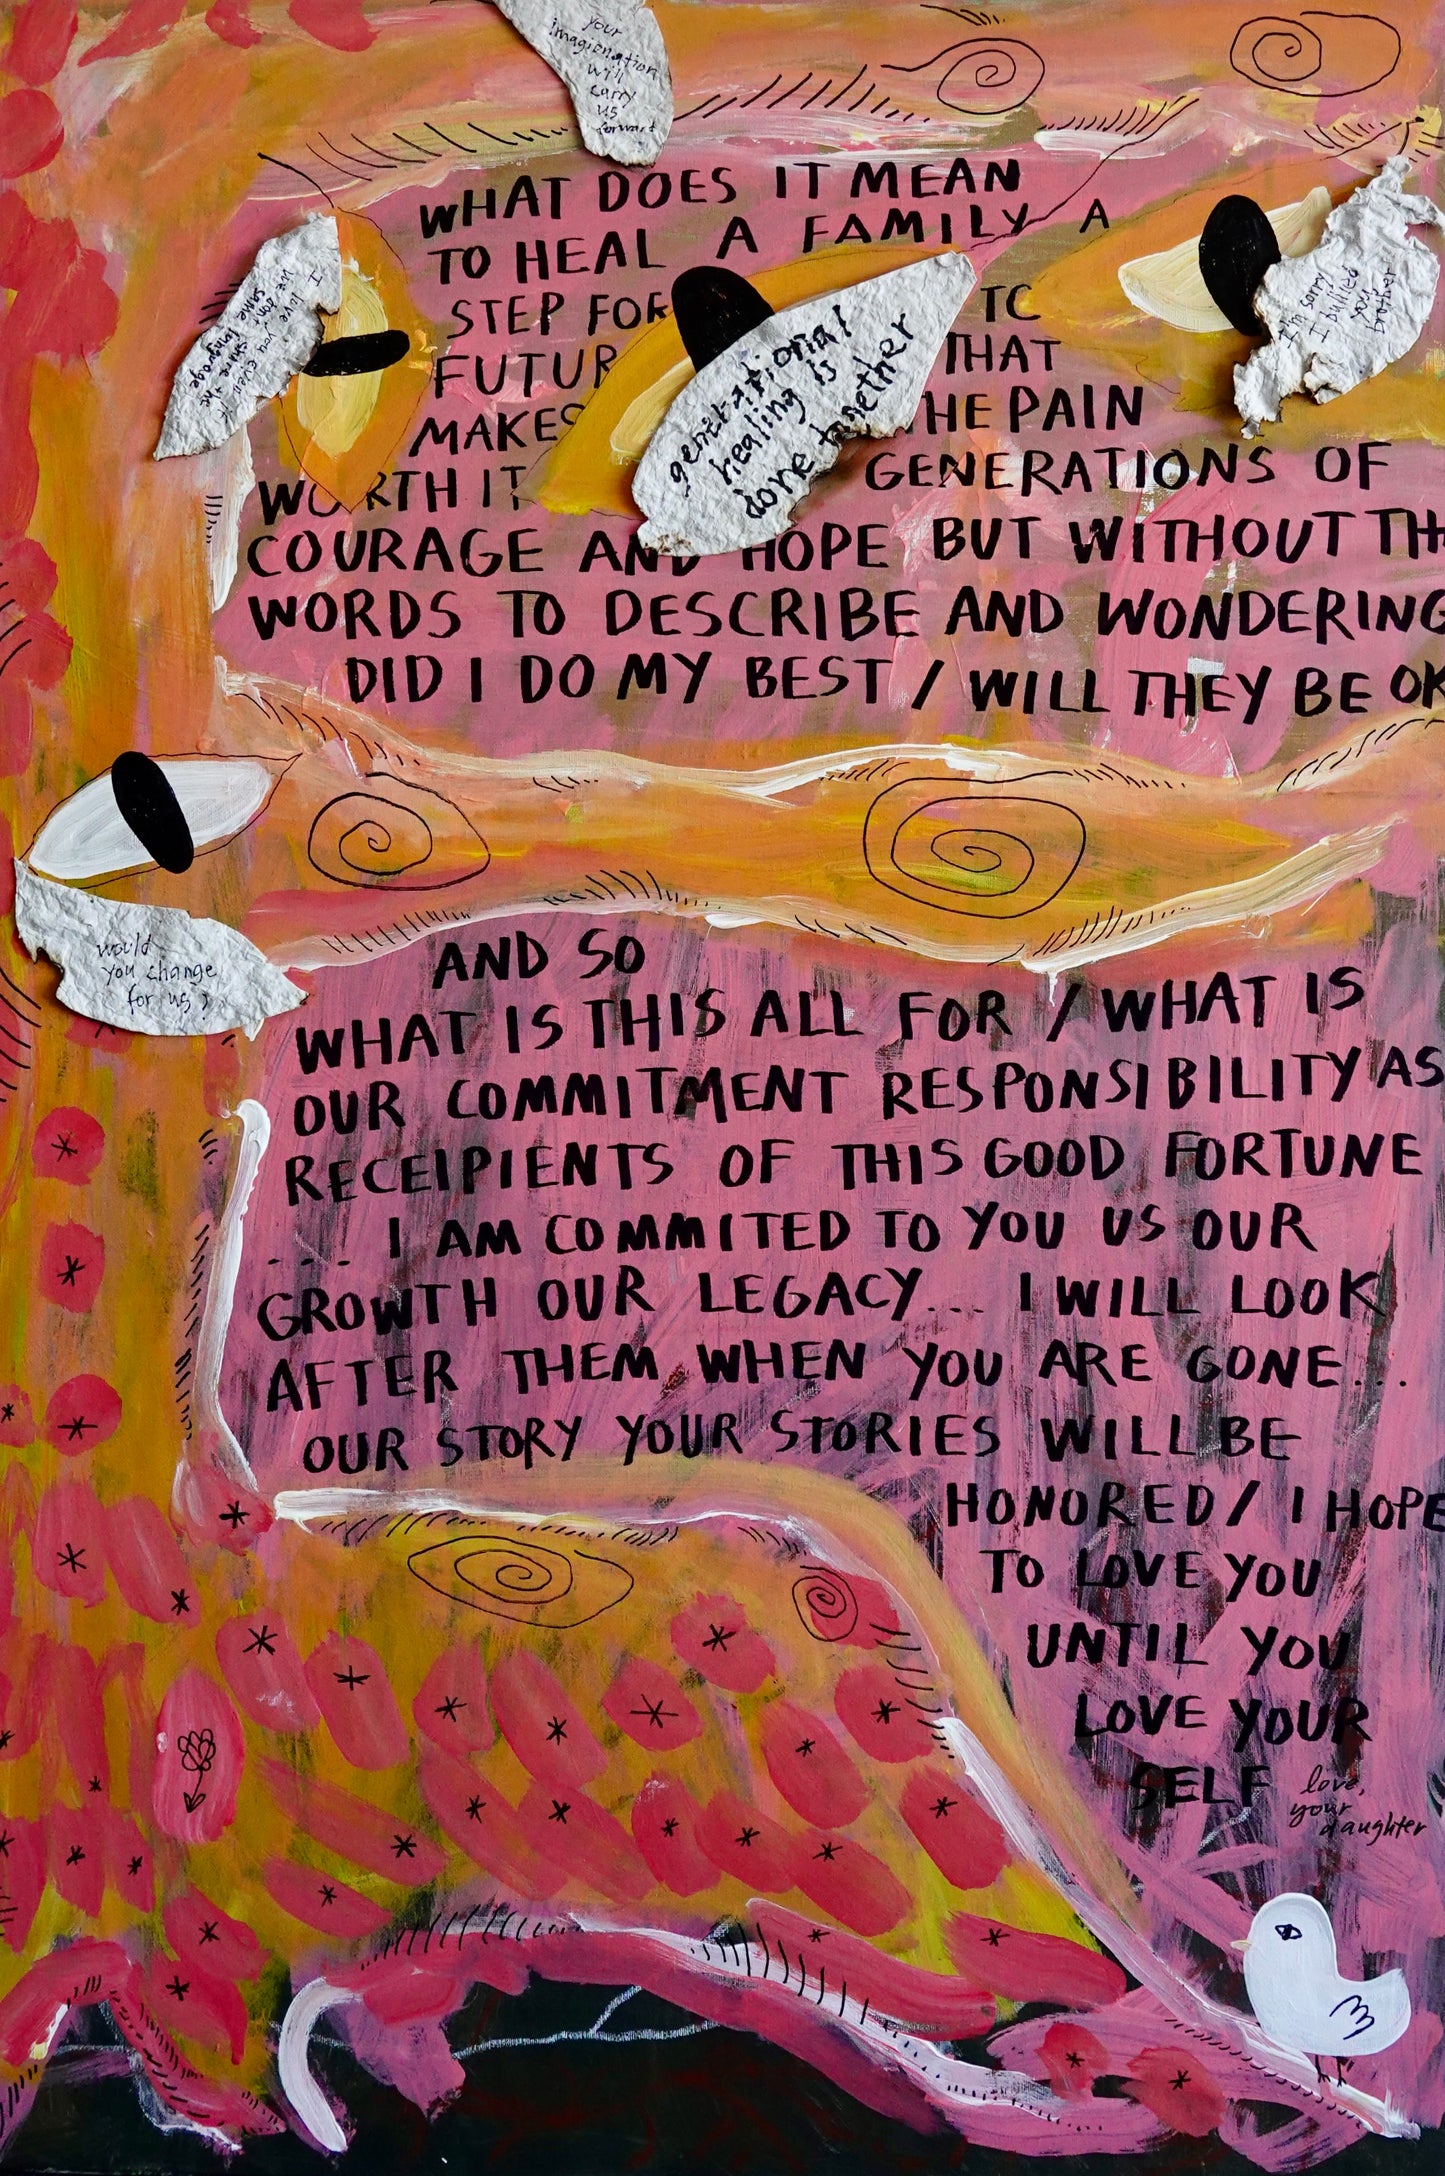 your
imagionation
will
carry
us
forward
WHAT DOES IT MEAN
TO HEAL A FAMILY A
STEP FOR
FUTUR
MAKES
WORTH IT
TO
THAT
THE PAIN
GENERATIONS OF
COURAGE AND HOPE BUT WITHOUT TH
WORDS TO DESCRIBE AND WONDERING
DID I DO MY BEST / WILL THEY BE OK
I love you even if
we don't share the
same language
generational
healing is
done together
I'm sorry
I bullied
your
brother
would
you change
for us?
AND SO
WHAT IS THIS ALL FOR / WHAT IS
OUR COMMITMENT RESPONSIBILITY AS
RECEIPIENTS OF THIS GOOD FORTUNE
... I AM COMMITED TO YOU US OUR
GROWTH OUR LEGACY... I WILL LOOK
AFTER THEM WHEN YOU ARE GONE...
OUR STORY YOUR STORIES WILL BE
HONORED / I HOPE
TO LOVE YOU
UNTIL YOU
LOVE YOUR
SELF
love,
your
daughter